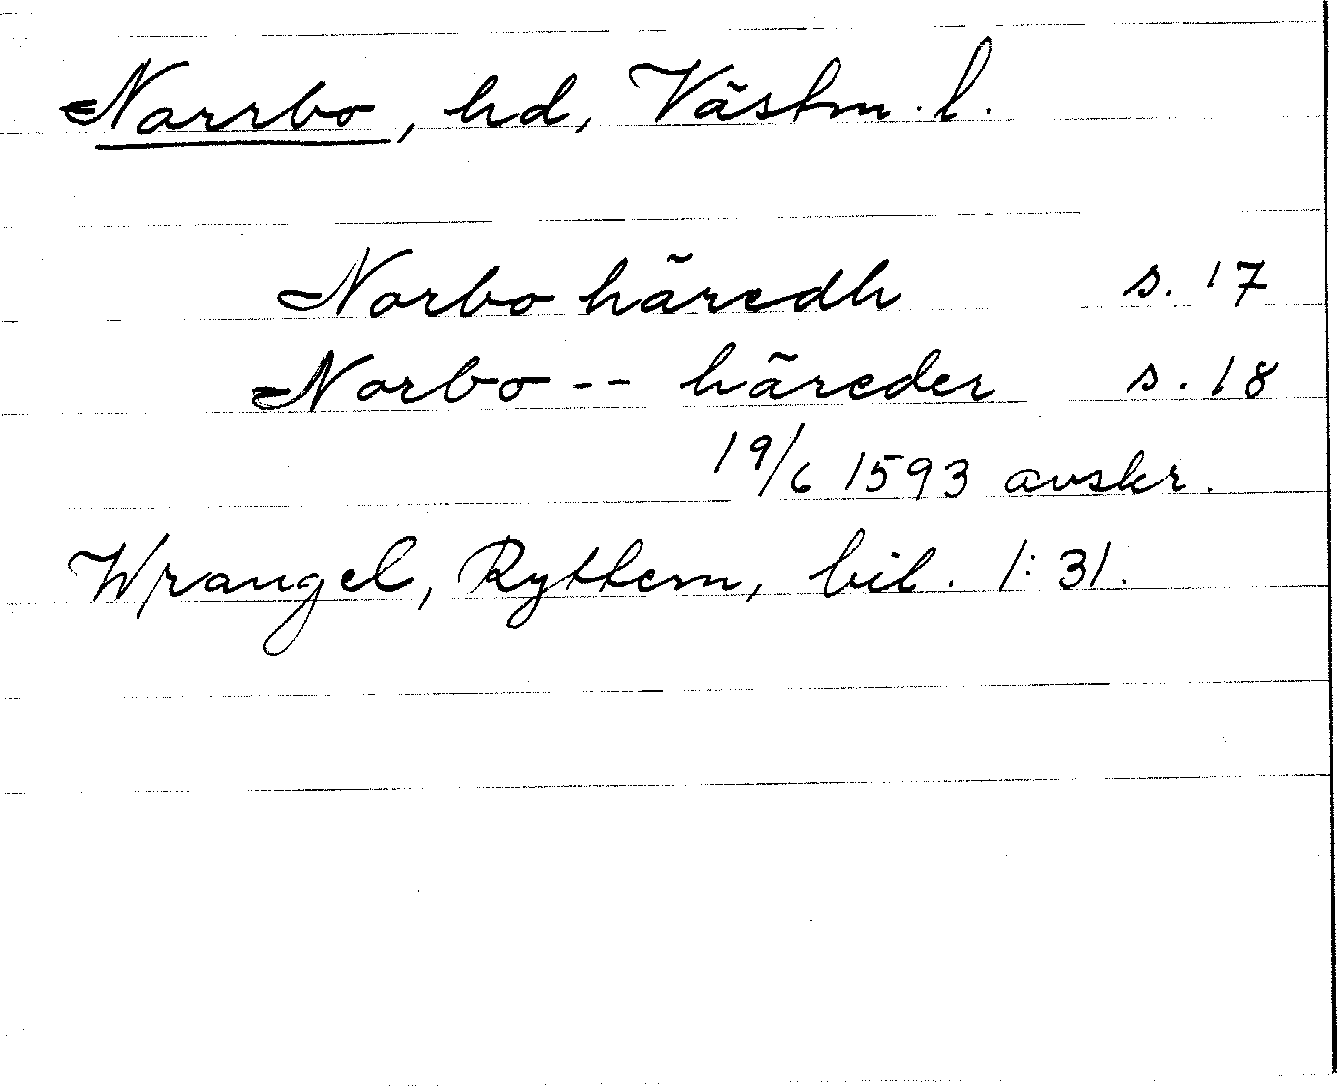 Norrbo, hd, Västm. l.
Norbo häredh s. 17
Norbo -- häreder s. 18
19/6 1593 avskr.
Wrangel, Ryttern, bil. 1:31.